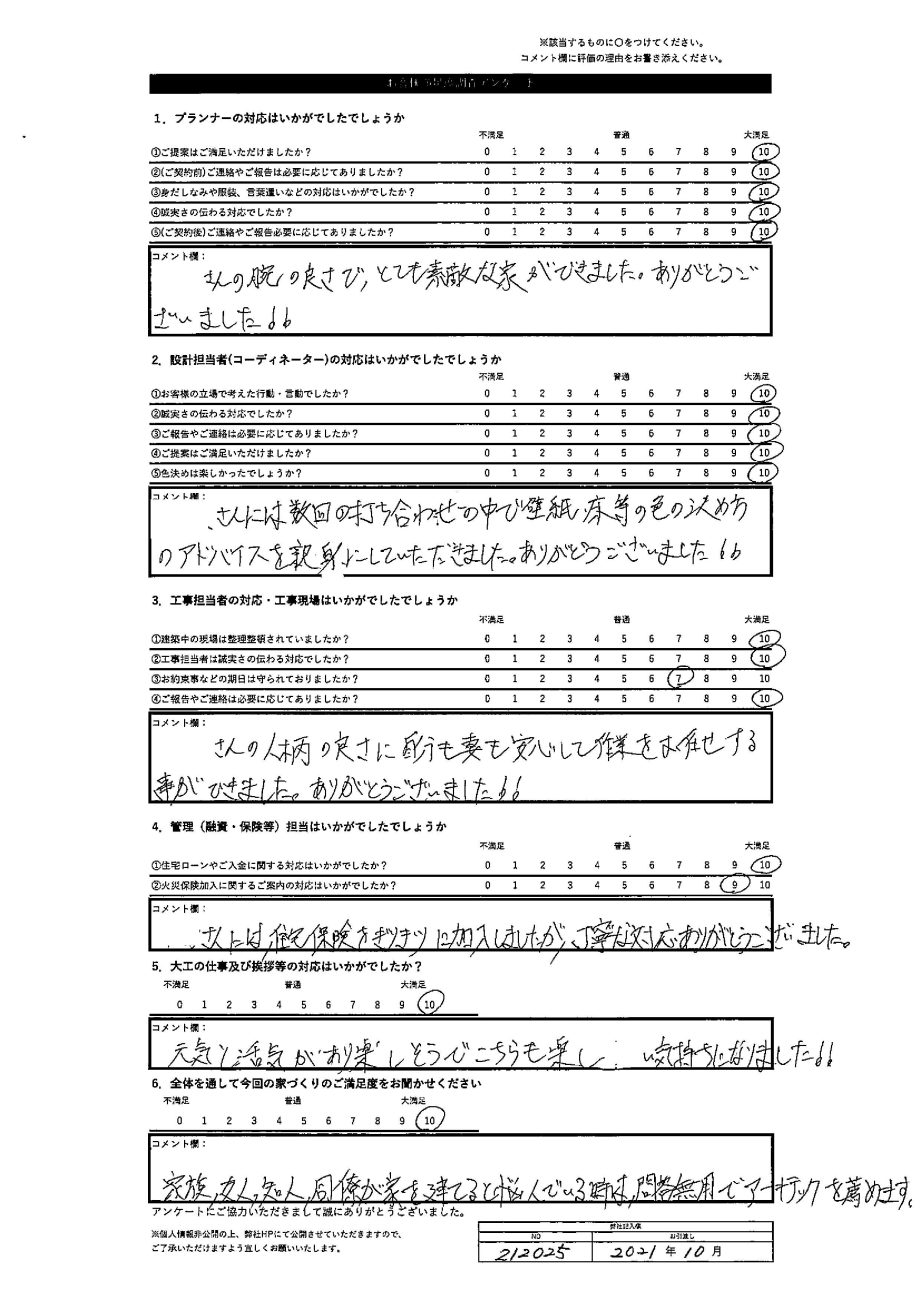 ※該当するものに〇をつけてください。
コメント欄に評価の理由をお書き添えください。
お客様満足度調査アンケート
1．プランナーの対応はいかがでしたでしょうか
不満足 普通 大満足
①ご提案はご満足いただけましたか？ 0 1 2 3 4 5 6 7 8 9 10
②(ご契約前)ご連絡やご報告は必要に応じてありましたか？ 0 1 2 3 4 5 6 7 8 9 10
③身だしなみや服装、言葉遣いなどの対応はいかがでしたか？ 0 1 2 3 4 5 6 7 8 9 10
④誠実さの伝わる対応でしたか？ 0 1 2 3 4 5 6 7 8 9 10
⑤(ご契約後)ご連絡やご報告必要に応じてありましたか？ 0 1 2 3 4 5 6 7 8 9 10
コメント欄：
さんの腕の良さで,とても素敵な家ができました。ありがとうご
ざいました!!
2．設計担当者(コーディネーター)の対応はいかがでしたでしょうか
不満足 普通 大満足
①お客様の立場で考えた行動・言動でしたか？ 0 1 2 3 4 5 6 7 8 9 10
②誠実さの伝わる対応でしたか？ 0 1 2 3 4 5 6 7 8 9 10
③ご報告やご連絡は必要に応じてありましたか？ 0 1 2 3 4 5 6 7 8 9 10
④ご提案はご満足いただけましたか？ 0 1 2 3 4 5 6 7 8 9 10
⑤色決めは楽しかったでしょうか？ 0 1 2 3 4 5 6 7 8 9 10
コメント欄：
さんには数回の打ち合わせの中で壁紙,床等の色の決め方
のアドバイスを親身にしていただきました。ありがとうございました!!
3．工事担当者の対応・工事現場はいかがでしたでしょうか
不満足 普通 大満足
①建築中の現場は整理整頓されていましたか？ 0 1 2 3 4 5 6 7 8 9 10
②工事担当者は誠実さの伝わる対応でしたか？ 0 1 2 3 4 5 6 7 8 9 10
③お約束事などの期日は守られておりましたか？ 0 1 2 3 4 5 6 7 8 9 10
④ご報告やご連絡は必要に応じてありましたか？ 0 1 2 3 4 5 6 7 8 9 10
コメント欄：
さんの人柄の良さに私も妻も安心して作業をお任せする
事ができました。ありがとうございました!!
4．管理（融資・保険等）担当はいかがでしたでしょうか
不満足 普通 大満足
①住宅ローンやご入金に関する対応はいかがでしたか？ 0 1 2 3 4 5 6 7 8 9 10
②火災保険加入に関するご案内の対応はいかがでしたか？ 0 1 2 3 4 5 6 7 8 9 10
コメント欄：
さんには,住宅保険をぎりぎりに加入しましたが,丁寧な対応ありがとうございました。
5．大工の仕事及び挨拶等の対応はいかがでしたか？
不満足 普通 大満足
0 1 2 3 4 5 6 7 8 9 10
コメント欄：
元気と活気があり楽しそうでこちらも楽し い気持ちになりました!!
6．全体を通して今回の家づくりのご満足度をお聞かせください
不満足 普通 大満足
0 1 2 3 4 5 6 7 8 9 10
コメント欄：
家族,友人,知人,同僚が家を建てると悩んでいる時は,問答無用でアーキテックを薦めます。
アンケートにご協力いただきまして誠にありがとうございました。
※個人情報非公開の上、弊社HPにて公開させていただきますので、
ご了承いただけますよう宜しくお願いいたします。
弊社記入欄
NO お引渡し
212025 2021年10月